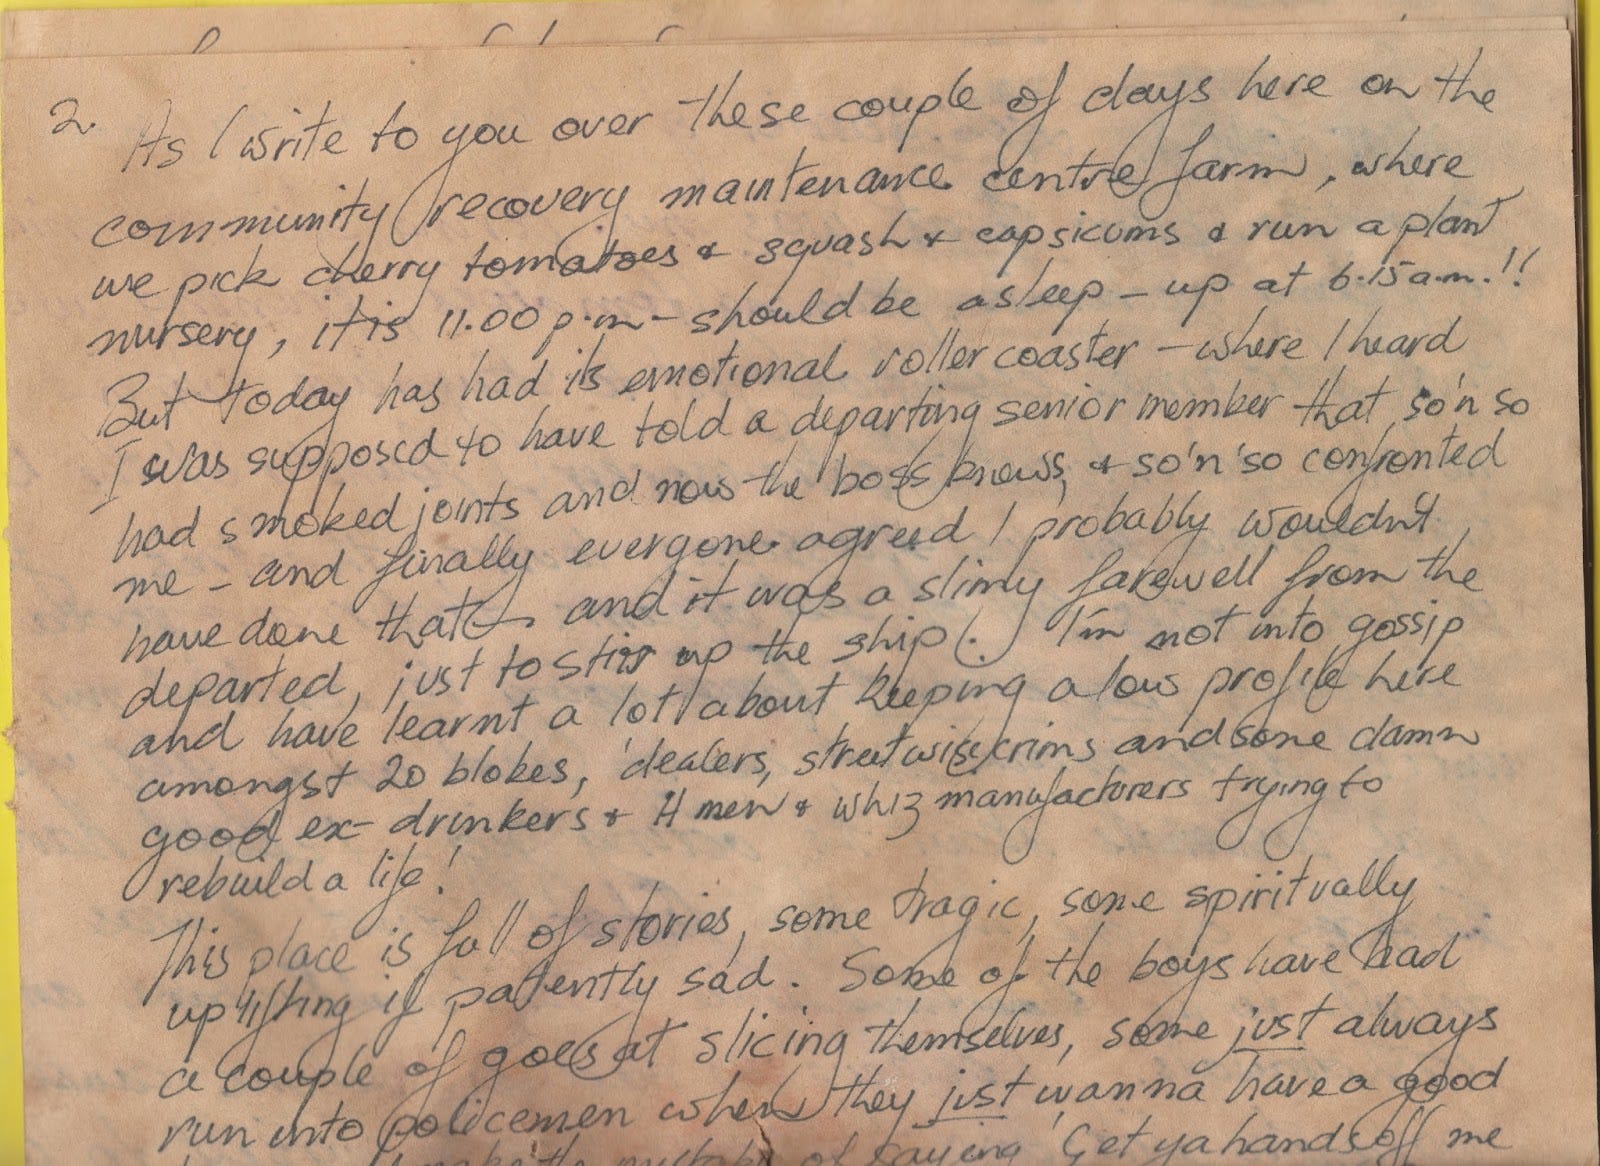 2. As I write to you over these couple of days here on the
community recovery maintenance centre farm, where
we pick cherry tomatoes & squash & capsicums & run a plant
nursery, it is 11.00 p.m – should be asleep – up at 6.15 a.m.!!
But today has had its emotional roller coaster – where I heard
I was supposed to have told a departing senior member that so'n so
had smoked joints and now the boss knows, & so'n'so confronted
me – and finally everyone agreed I probably wouldn't
have done that – and it was a slimy farewell from the
departed, just to stir up the ship (. I'm not into gossip
and have learnt a lot about keeping a low profile here
amongst 20 blokes, 'dealers, streetwise crims and some damn
good ex-drinkers & H men & whiz manufacturers trying to
rebuild a life!
This place is full of stories, some tragic, some spiritually
uplifting if patently sad. Some of the boys have had
a couple of goes at slicing themselves, some just always
run into policemen when they just wanna have a good
make the mistake of saying 'Get ya hands off me